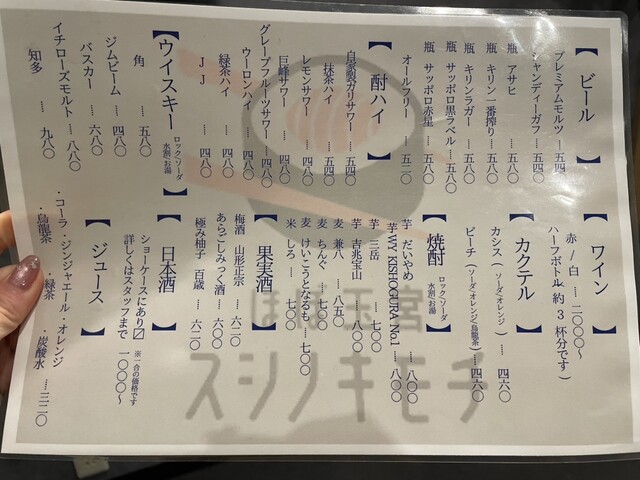 【ビール】
プレミアムモルツ … 五四〇
シャンディーガフ … 五四〇
瓶 アサヒ … 五八〇
瓶 キリン一番搾り … 五八〇
瓶 キリンラガー … 五八〇
瓶 サッポロ黒ラベル … 五八〇
瓶 サッポロ赤星 … 五八〇
オールフリー … 五二〇
【酎ハイ】
自家製ガリサワー … 五四〇
抹茶ハイ … 五四〇
レモンサワー … 四八〇
巨峰サワー … 四八〇
グレープフルーツサワー … 四八〇
ウーロンハイ … 四八〇
緑茶ハイ … 四八〇
JJ … 四八〇
【ウイスキー】 ロック/ソーダ
水割/お湯
角 … 五八〇
ジムビーム … 四八〇
バスカー … 六八〇
イチローズモルト … 八八〇
知多 … 九八〇
【ワイン】
赤/白 … 二〇〇〇~
ハーフボトル(約3杯分です)
【カクテル】
カシス(ソーダ/オレンジ) … 四六〇
ピーチ(ソーダ/オレンジ/烏龍茶) … 四六〇
【焼酎】 ロック/ソーダ
水割/お湯
芋 だいやめ … 八〇〇
芋 WV KISHOGURA No.1 … 八〇〇
芋 三岳 … 七〇〇
芋 吉兆宝山 … 八〇〇
麦 兼八 … 八五〇
麦 ちんぐ … 七〇〇
麦 けいこうとなるも … 七〇〇
米 しろ … 七〇〇
【果実酒】
梅酒 山形正宗 … 六二〇
あらごしみっく酒 … 六〇〇
極み柚子 百歳 … 六二〇
【日本酒】
ショーケースにあり〼
詳しくはスタッフまで
※一合の価格です
一〇〇〇~
【ジュース】
・コーラ・ジンジャエール・オレンジ
・烏龍茶 ・緑茶 ・炭酸水 … 三二〇
ほぼ玉宮
スシノキモチ